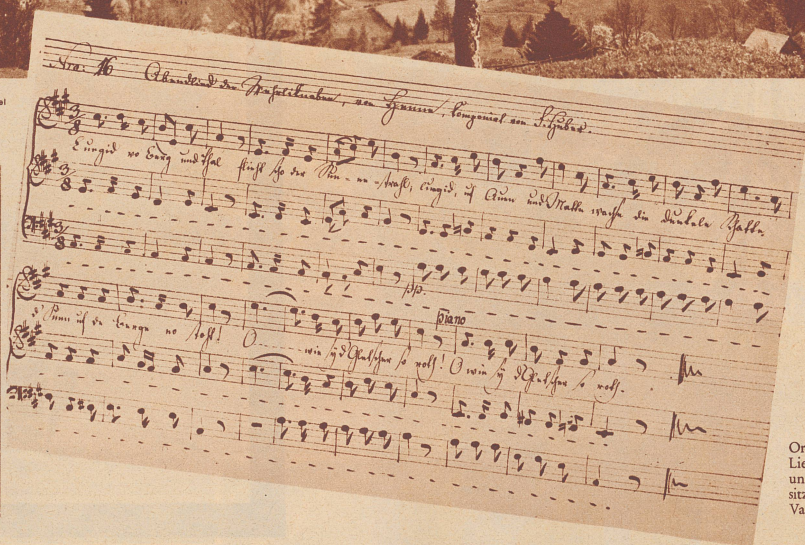 Nro: 16 Abendlied der Wehrliknaben, von Henne, komponiert von F. Huber.
Lueged vo Berg und Thal flieht scho der Sun-ne-strahl, lueged, uf Auen und Matte wachse die dunkele Schatte,
pp.
piano
d'Sunn uf de Berge no stoht! O wie syd Gletscher so roth! O wie sy d'Gletscher so roth.
el
Or
Lie
un
sitz
Va